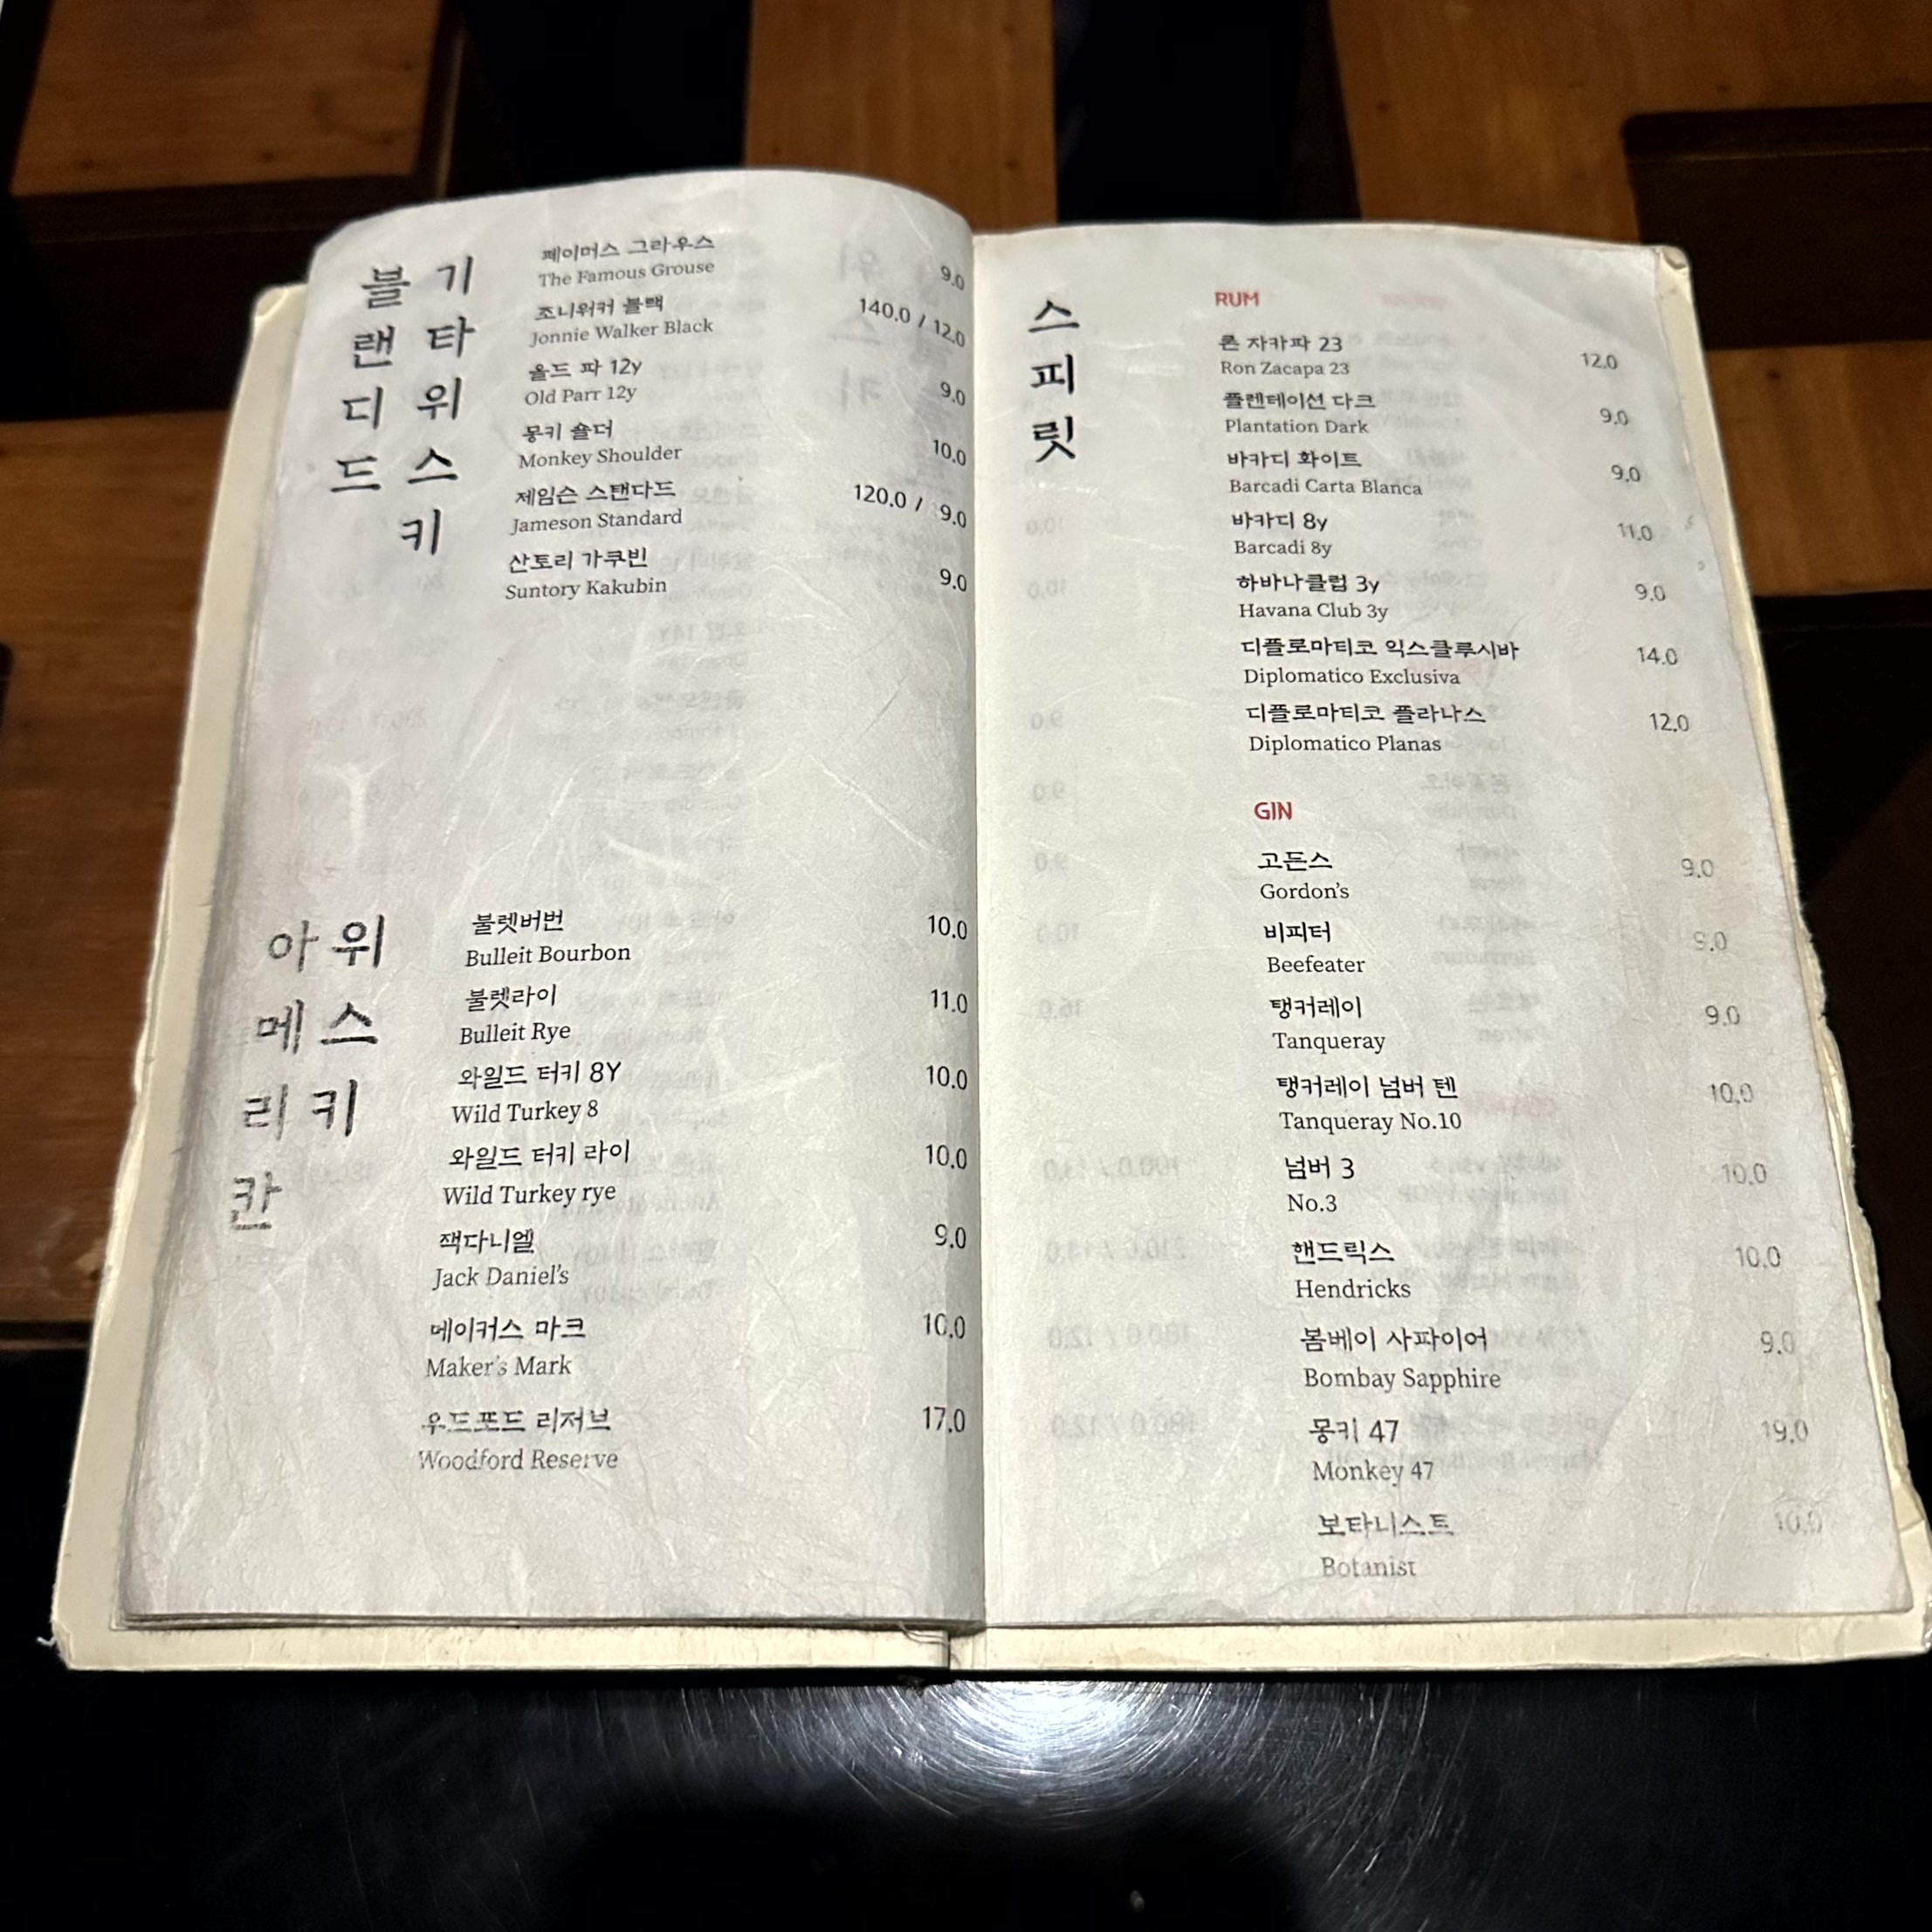 블랜디드
기타위스키
페이머스 그라우스
The Famous Grouse
9.0
조니워커 블랙
Jonnie Walker Black
140.0 / 12.0
올드 파 12y
Old Parr 12y
9.0
몽키 숄더
Monkey Shoulder
10.0
제임슨 스탠다드
Jameson Standard
120.0 / 9.0
산토리 가쿠빈
Suntory Kakubin
9.0
아메리칸
위스키
불렛버번
Bulleit Bourbon
10.0
불렛라이
Bulleit Rye
11.0
와일드 터키 8Y
Wild Turkey 8
10.0
와일드 터키 라이
Wild Turkey rye
10.0
잭다니엘
Jack Daniel's
9.0
메이커스 마크
Maker's Mark
10.0
우드포드 리저브
Woodford Reserve
17.0
스피릿
RUM
론 자카파 23
Ron Zacapa 23
12.0
플렌테이션 다크
Plantation Dark
9.0
바카디 화이트
Barcadi Carta Blanca
9.0
바카디 8y
Barcadi 8y
11.0
하바나클럽 3y
Havana Club 3y
9.0
디플로마티코 익스클루시바
Diplomatico Exclusiva
14.0
디플로마티코 플라나스
Diplomatico Planas
12.0
GIN
고든스
Gordon's
9.0
비피터
Beefeater
9.0
탱커레이
Tanqueray
9.0
탱커레이 넘버 텐
Tanqueray No.10
10.0
넘버 3
No.3
10.0
핸드릭스
Hendricks
10.0
봄베이 사파이어
Bombay Sapphire
9.0
몽키 47
Monkey 47
19.0
보타니스트
Botanist
10.0